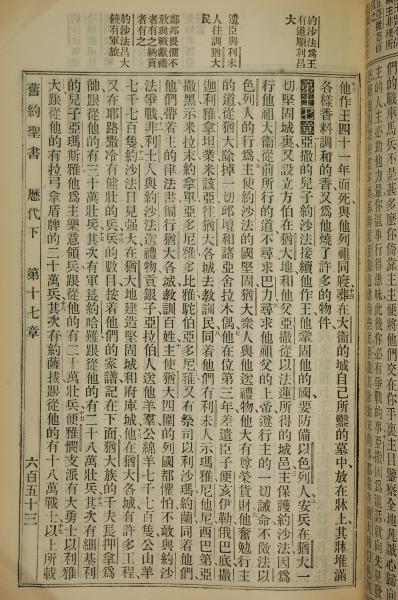 約沙法爲王
有道順利昌
大
遣臣與利未
人往訓猶大
民
鄰邦畏懼不
敢與戰獻禮
者有之納貢
者有之
約沙法昌大
饒有軍旅
他作王四十一年而死與他列祖同寢葬在大衞的城自己所鑿的墓中放在牀上其牀堆滿
各樣香料調和的香又爲他燒了許多的物件
第十七章 亞撒的兒子約沙法接續他作王他鞏固他的國要防備以色列人安兵在猶大一
切堅固城裏又設立方伯在猶大地和他父亞撒從以法蓮所得的城邑主保護約沙法因爲
他行他祖大衞從前所行的道不尋求巴力尋求他祖父的上帝遵行主的一切誡命不傚法以
色列人的行爲主使約沙法的國堅固猶大衆人與他送禮物他大有尊榮貨財他奮勉行主
的道從猶大除掉一切邱壇和諸亞舍拉木偶他在位第三年差遣臣子便亥伊勒俄巴底撒
迦利雅拿坦業米該亞往猶大各城去教訓民同着他們有利未人示瑪雅尼他尼西巴第亞
撒黑示米拉末約拿單亞多尼雅多比雅駝伯亞多尼雅又有祭司以利沙瑪約蘭同着他們
他們帶着主的律法書徧行猶大各城教訓百姓主使猶大四圍的列國都懼怕不敢與約沙
法爭戰非利士人與約沙法送禮物貢銀子亞拉伯人送他羊羣公綿羊七千七百隻公山羊
七千七百隻約沙法日見强大在猶大地建造堅固城和府庫城他在猶大各城有許多工程
又在耶路撒冷有健壯的兵兵的數目按着他們的家譜記在下面猶大族的千夫長押拿爲
帥跟從他的有三十萬壯兵其次有軍長約哈難跟從他的有二十八萬壯兵其次有細基利
的兒子亞瑪斯雅他爲主樂意領兵跟從他的有二十萬壯兵便雅憫支派有大勇士以利雅
大跟從他的有拉弓拿盾牌的二十萬兵其次有約薩拔跟從他的有十八萬戰士以上所載
舊約聖書 歷代下 第十七章 六百五十三